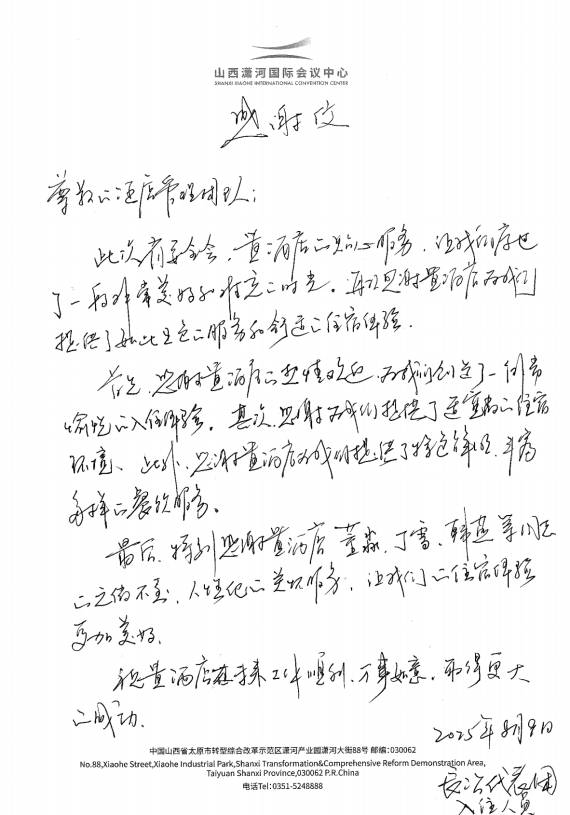 山西潇河国际会议中心
SHANXI XIAOHE INTERNATIONAL CONVENTION CENTER
感谢信
尊敬的酒店管理团队：
此次省安全会，贵酒店的贴心服务，让我们度过
了一段非常美好和难忘的时光。再次感谢贵酒店为我们
提供了如此出色的服务和舒适的住宿体验。
首先，感谢贵酒店的热情欢迎，为我们创造了一个非常
愉悦的入住体验。其次，感谢为我们提供了适宜的住宿
环境、此外，感谢贵酒店为我们提供了特色鲜明、丰富
多样的餐饮服务。
最后，特别感谢贵酒店 董淼、丁雪、韩燕等同志
的无微不至、人性化的关怀服务，让我们的住宿体验
更加美好。
祝贵酒店在未来工作顺利、万事如意，取得更大
的成功。
2025年8月9日
长治代表团
入住人员
中国山西省太原市转型综合改革示范区潇河产业园潇河大街88号 邮编：030062
No.88,Xiaohe Street,Xiaohe Industrial Park,Shanxi Transformation&Comprehensive Reform Demonstration Area,
Taiyuan Shanxi Province,030062 P.R.China
电话Tel：0351-5248888